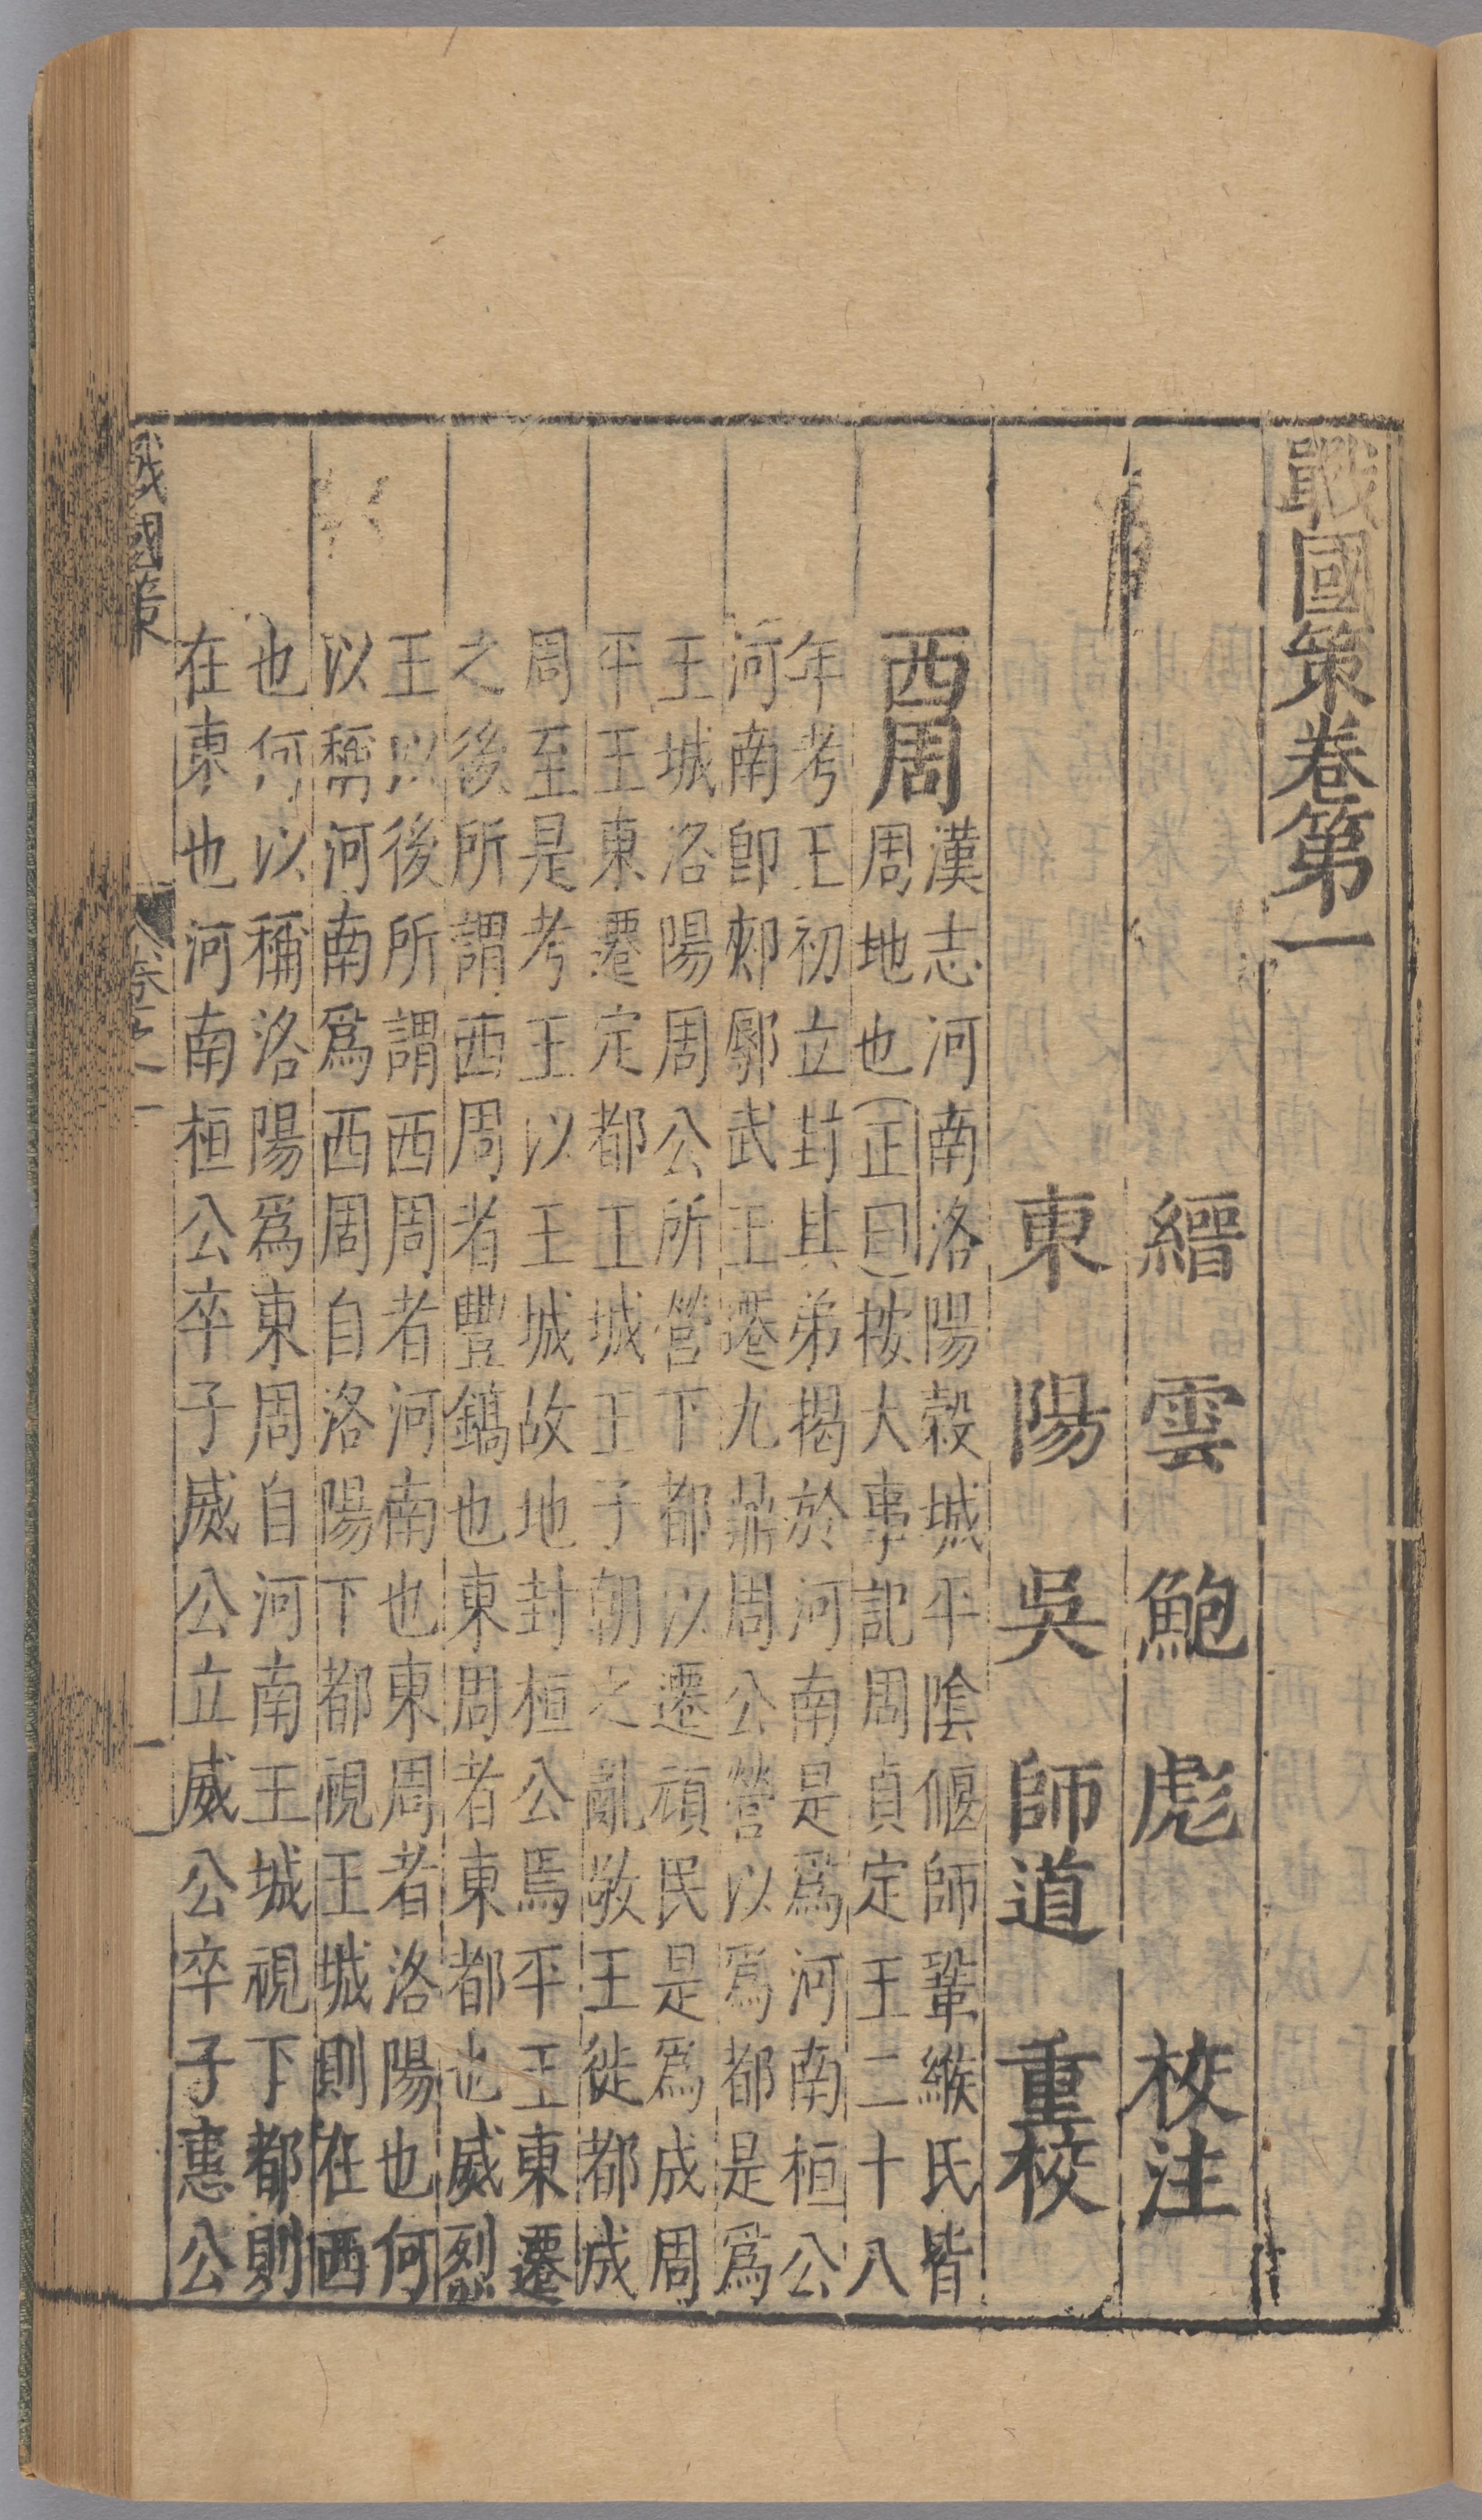 戰國策卷第一
縉雲鮑彪校注
東陽吳師道重校
西周
漢志河南洛陽穀城平陰偃師鞏緱氏皆
周地也正曰按大事記周貞定王二十八
年考王初立封其弟揭於河南是爲河南桓公
河南卽郟鄏武王遷九鼎周公營以爲都是爲
王城洛陽周公所營下都以遷頑民是爲成周
平王東遷定都王城王子朝之亂敬王徙都成
周至是考王以王城故地封桓公焉平王東遷
之後所謂西周者豐鎬也東周者東都也威烈
王以後所謂西周者河南也東周者洛陽也何
以稱河南爲西周自洛陽下都視王城則在西
也何以稱洛陽爲東周自河南王城視下都則
在東也河南桓公卒子威公立威公卒子惠公
戰國策 卷之一 一